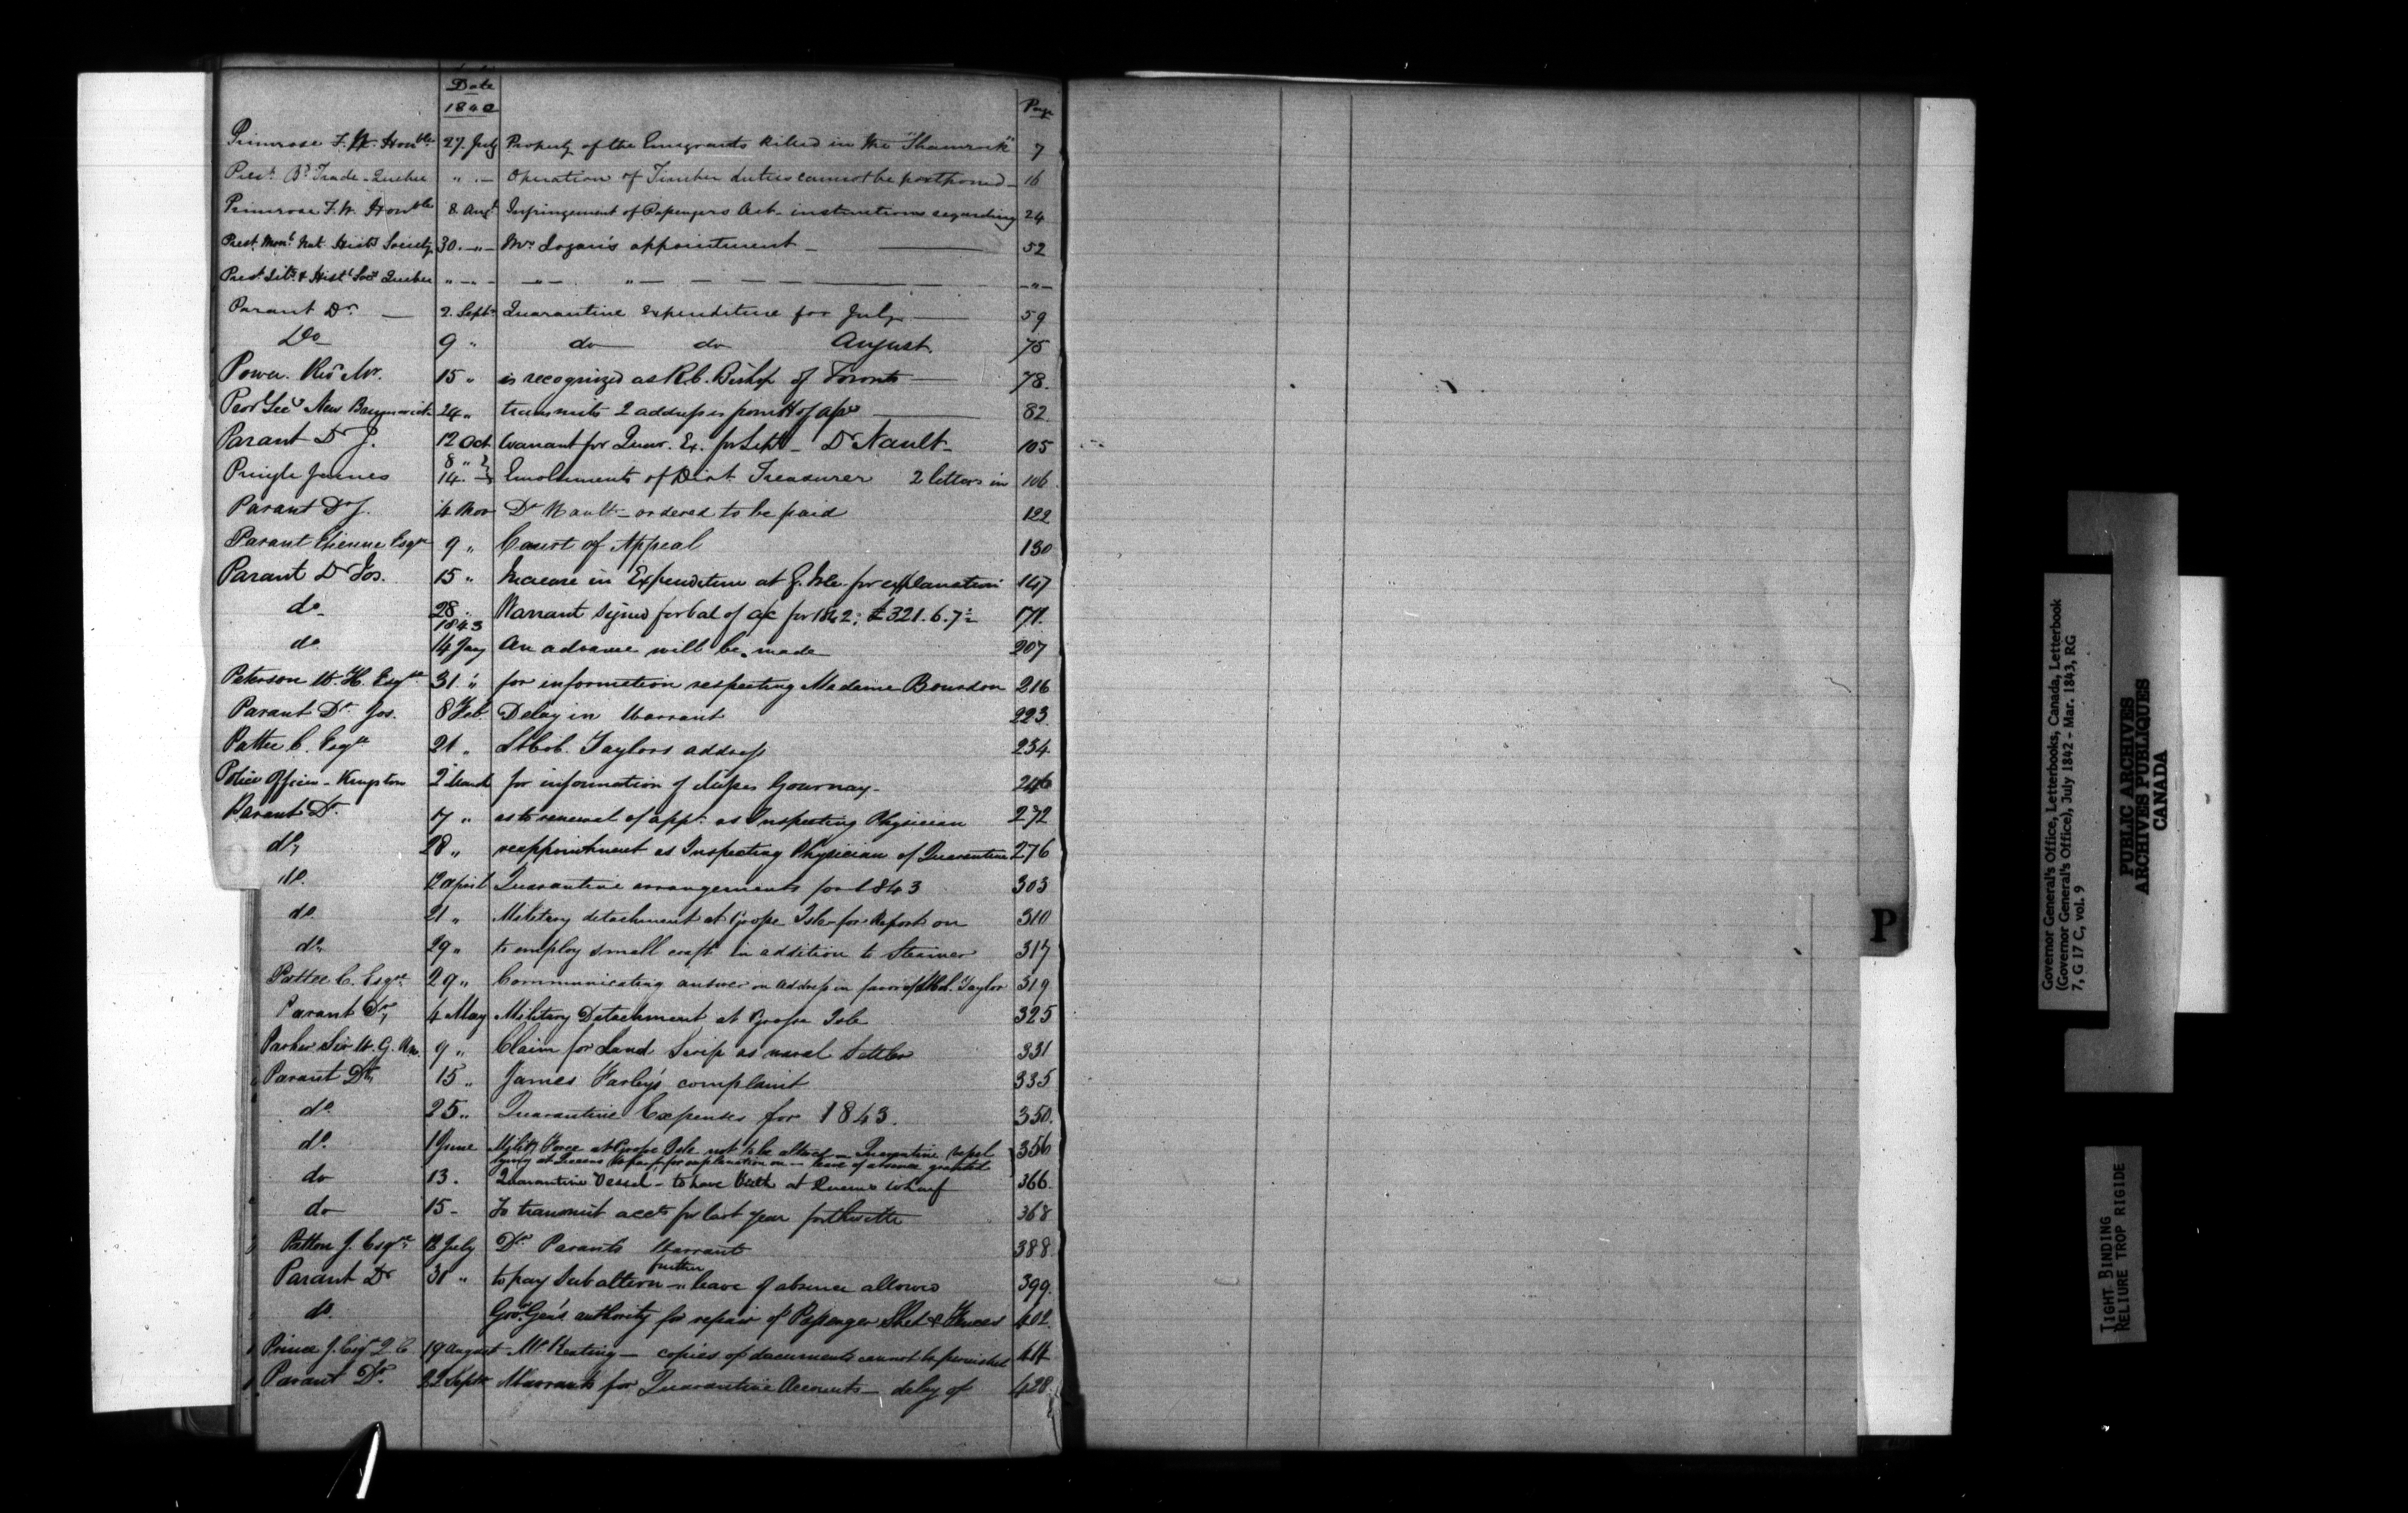 Date
1842 Page
Primrose F. W. Honble 27 July Property of the Emigrants killed in the "Shamrock" 7
Prest Bd Trade - Quebec " - Operation of Timber duties cannot be postponed - 16
Primrose F. W. Honble 8 Augt Infringement of Passengers Act - instructions regarding 24
Prest Mont Nat Histl Society 30 - " - Mr Logan's appointment - 52
Prest Lity & Histl Socy Quebec " - - - " - " - - " -
Parant Dr - 2 Septr Quarantine Expenditure for July 59
Do 9 " do do August. 75
Power. Revd Mr. 15 " is recognized as R.C. Bishop of Toronto 78.
Provl Secy New Brunswick 24 " transmits 2 addresses from H of Ass 82
Parant Dr J. 12 Oct Warrant for Quar. Ex. for Sept - Dr Nault 105
Pringle James 8 " 14 - Emoluments of Dist Treasurer 2 letters in 106
Parant Dr J. 4 Nov Dr Nault - ordered to be paid 122
Parant Etienne Esqre 9 " Court of Appeal 130
Parant Dr Jos. 15 " Increase in Expenditure at G. Isle - for explanation 147
do 28 Warrant signed for bal of a/c for 1842; £321.6.7½ 171.
1843
do 14 Jany An advance will be made 207
Peterson W. H. Esqre 31 " for information respecting Madame Bourdon 216
Parant Dr Jos. 8 Feb Delay in Warrant 223.
Pattee C. Esqre 21 " Lt Col. Taylors address 234
Police Office - Kingston 2 March for information of Misses Gournay - 246
Parant Dr 17 " as to renewal of appt as Inspecting Physician 272
do, 28 " reappointment as Inspecting Physician of Quarantine 276
do. 12 April Quarantine arrangements for 1843 303
do 21 " Military detachment at Grosse Isle - for Report on 310
do 29 " to employ small craft in addition to Steamer 317
Pattee C. Esqre 29 " Communicating answer on address in favor of Lt Col. Taylor 319
Parant Dr, 4 May Military Detachment at Grosse Isle 325
Parker Sir W. G. 9 " Claim for Land Scrip as naval Settler 331
Parant Dr, 15 " James Farley's complaint 335
do 25 " Quarantine Expenses for 1843. 350.
do 1 June Mility Force at Grosse Isle not to be altered - Quarantine Vessel 356
lying at Queens Wharf for explanation on - leave of absence granted
do 13. Quarantine Vessel - to have Birth at Queens Wharf 366.
do 15 - To transmit accts for last year forthwith 368
Patton J. Esqre 12 July Dr Parants Warrant 388
Parant Dr 31 " to pay Subaltern - further leave of absence allowed 399.
do. Govr Gen's authority for repair of Passenger Shed & Fences 402.
Prince J. Esqr Q C 19 August Mr Keating - copies of documents cannot be furnished 414
Parant Dr 22 Septr Warrants for Quarantine Accounts - delay of 428.
P
Governor General's Office, Letterbooks, Canada, Letterbook
(Governor General's Office), July 1842 - Mar. 1843, RG
7, G 17 C, vol. 9
PUBLIC ARCHIVES
ARCHIVES PUBLIQUES
CANADA
TIGHT BINDING
RELIURE TROP RIGIDE